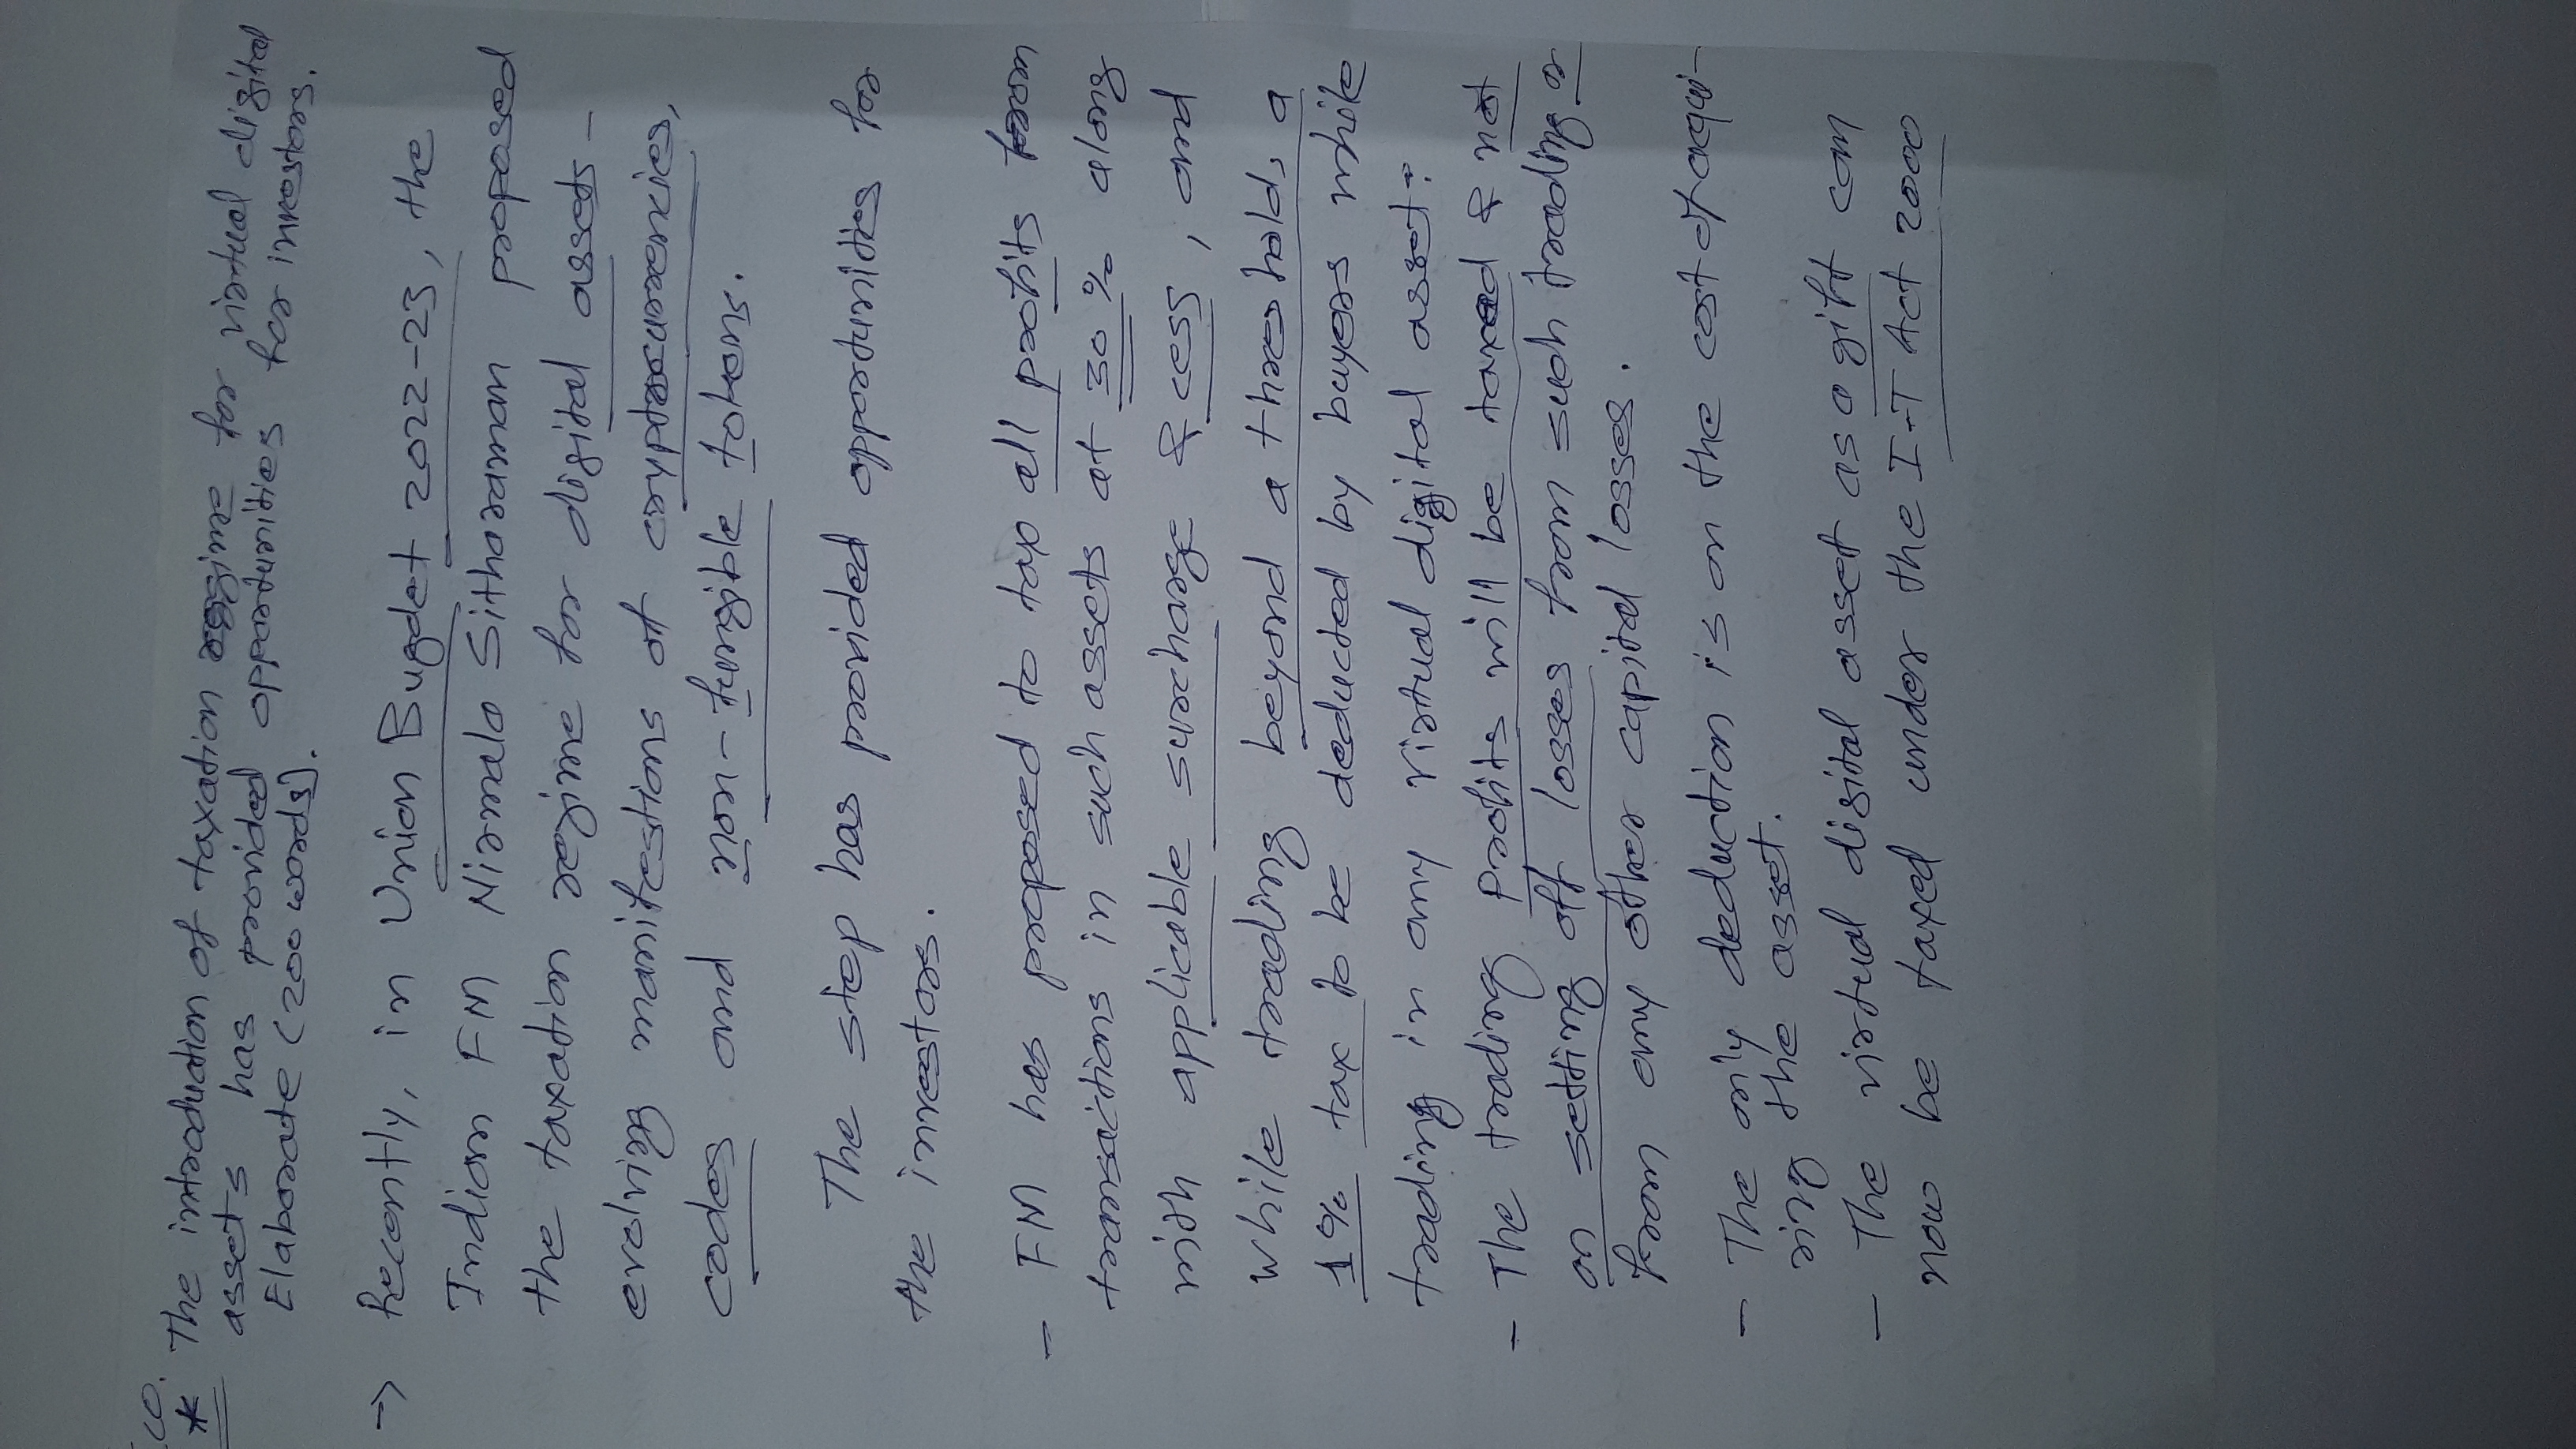 ECO.
* The introduction of taxation regime for virtual digital
assets has provided opportunities for investors.
Elaborate (200 words).
→ Recently, in Union Budget 2022-23, the
Indian FM Nirmala Sitharaman proposed
the taxation regime for digital assets -
evolving manifestions of cryptocurrencies,
codes and non-fungible tokens.
The step has provided opportunities for
the investors.
- FM has proposed to tap all profits from
transactions in such assets at 30% along
with applicable surcharge & cess, and
while trading beyond a threshold, a
1% tax to be deducted by buyers while
trading in any virtual digital asset.
- The trading profits will be taxed & not
on setting off losses from such trading or
from any other capital losses.
- The only deduction is on the cost of acqui-
ring the asset.
- The virtual digital asset as a gift can
now be taxed under the I-T Act 2000